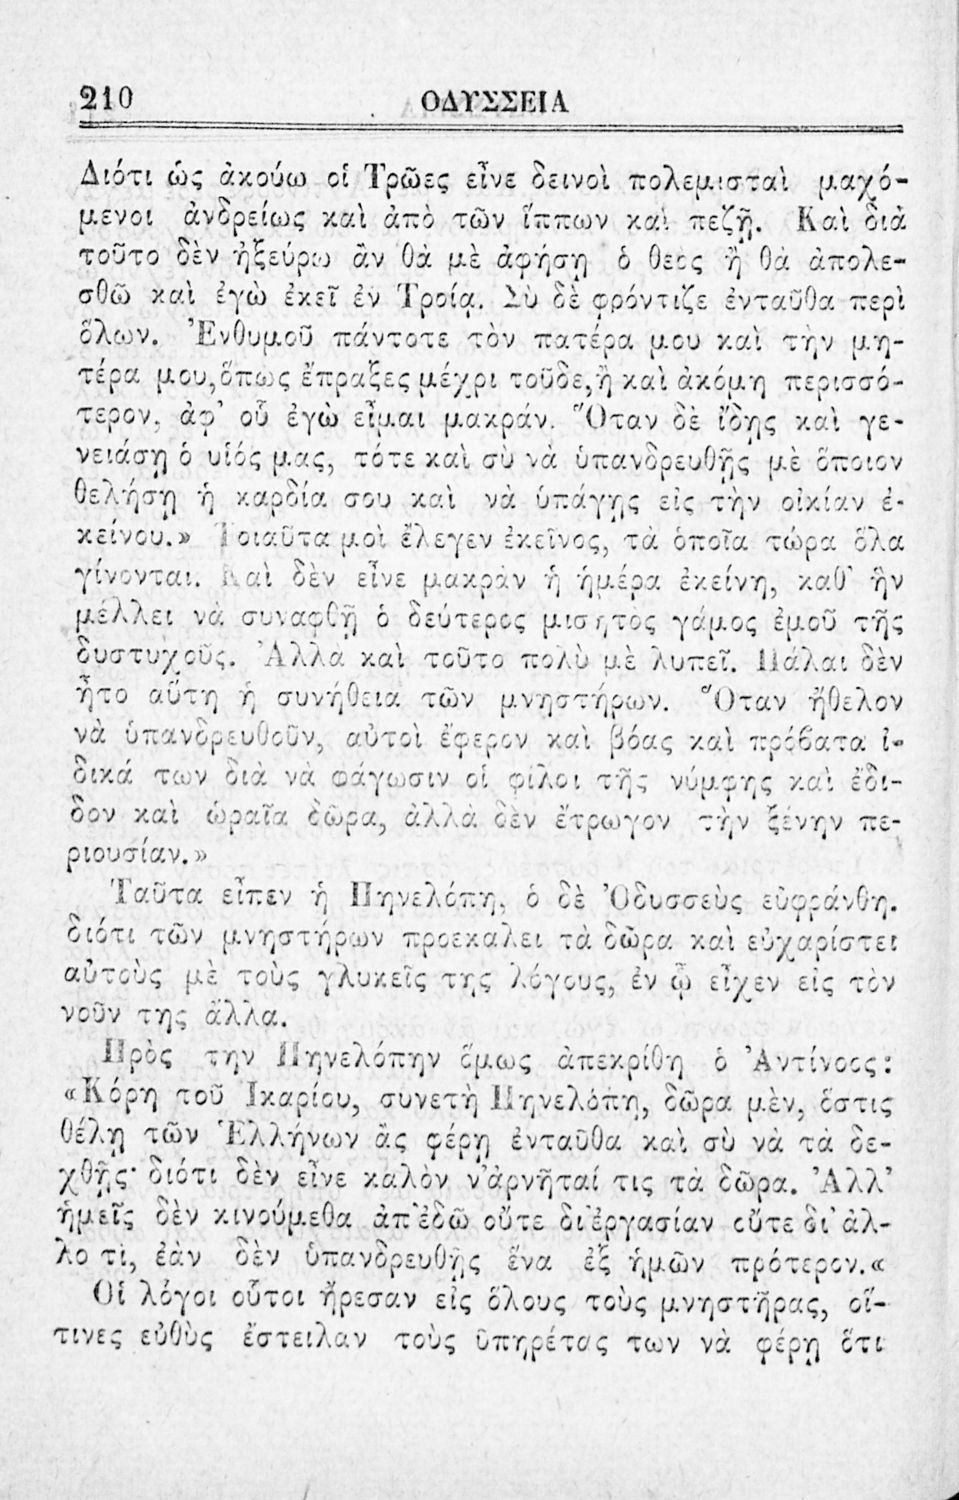 210 ΟΔΥΣΣΕΙΑ
Διότι ὡς ἀκούω οἱ Τρῶες εἶνε δεινοὶ πολεμισταὶ μαχό-
μενοι ἀνδρείως καὶ ἀπὸ τῶν ἵππων καὶ πεζῇ. Καὶ διὰ
τοῦτο δὲν ἠξεύρω ἂν θὰ μὲ ἀφήσῃ ὁ θεὸς ἢ θὰ ἀπολε-
σθῶ καὶ ἐγὼ ἐκεῖ ἐν Τροίᾳ. Σὺ δὲ φρόντιζε ἐνταῦθα περὶ
ὅλων. Ἐνθυμοῦ πάντοτε τὸν πατέρα μου καὶ τὴν μη-
τέρα μου, ὅπως ἔπραξες μέχρι τοῦδε, ἢ καὶ ἀκόμη περισσό-
τερον, ἀφ’ οὗ ἐγὼ εἶμαι μακράν. Ὅταν δὲ ἴδῃς καὶ γε-
νειάσῃ ὁ υἱός μας, τότε καὶ σὺ νὰ ὑπανδρευθῇς μὲ ὅποιον
θελήσῃ ἡ καρδία σου καὶ νὰ ὑπάγῃς εἰς τὴν οἰκίαν ἐ-
κείνου.» Τοιαῦτα μοὶ ἔλεγεν ἐκεῖνος, τὰ ὁποῖα τώρα ὅλα
γίνονται. Καὶ δὲν εἶνε μακρὰν ἡ ἡμέρα ἐκείνη, καθ’ ἣν
μέλλει νὰ συναφθῇ ὁ δεύτερος μισητὸς γάμος ἐμοῦ τῆς
δυστυχοῦς. Ἀλλὰ καὶ τοῦτο πολὺ μὲ λυπεῖ. Πάλαι δὲν
ἦτο αὕτη ἡ συνήθεια τῶν μνηστήρων. Ὅταν ἤθελον
νὰ ὑπανδρευθοῦν, αὐτοὶ ἔφερον καὶ βόας καὶ πρόβατα ἰ-
δικά των διὰ νὰ φάγωσιν οἱ φίλοι τῆς νύμφης καὶ ἔδι-
δον καὶ ὡραῖα δῶρα, ἀλλὰ δὲν ἔτρωγον τὴν ξένην πε-
ριουσίαν.»
Ταῦτα εἶπεν ἡ Πηνελόπη, ὁ δὲ Ὀδυσσεὺς εὐφράνθη.
διότι τῶν μνηστήρων προεκάλει τὰ δῶρα καὶ εὐχαρίστει
αὐτοὺς μὲ τοὺς γλυκεῖς της λόγους, ἐν ᾧ εἶχεν εἰς τὸν
νοῦν της ἄλλα.
Πρὸς τὴν Πηνελόπην ὅμως ἀπεκρίθη ὁ Ἀντίνοος:
«Κόρη τοῦ Ἰκαρίου, συνετὴ Πηνελόπη, δῶρα μὲν, ὅστις
θέλῃ τῶν Ἑλλήνων ἂς φέρῃ ἐνταῦθα καὶ σὺ νὰ τὰ δε-
χθῇς· διότι δὲν εἶνε καλὸν ν’ ἀρνῆταί τις τὰ δῶρα. Ἀλλ’
ἡμεῖς δὲν κινούμεθα ἀπ’ ἐδῶ οὔτε δι’ ἐργασίαν οὔτε δι’ ἀλ-
λο τὶ, ἐὰν δὲν ὑπανδρευθῇς ἕνα ἐξ ἡμῶν πρότερον.«
Οἱ λόγοι οὗτοι ἤρεσαν εἰς ὅλους τοὺς μνηστῆρας, οἵ-
τινες εὐθὺς ἔστειλαν τοὺς ὑπηρέτας των νὰ φέρῃ ὅτι